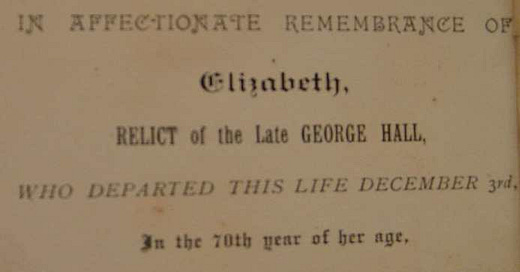 IN AFFECTIONATE REMEMBRANCE OF
Elizabeth,
RELICT of the Late GEORGE HALL,
WHO DEPARTED THIS LIFE DECEMBER 3rd,
In the 70th year of her age.